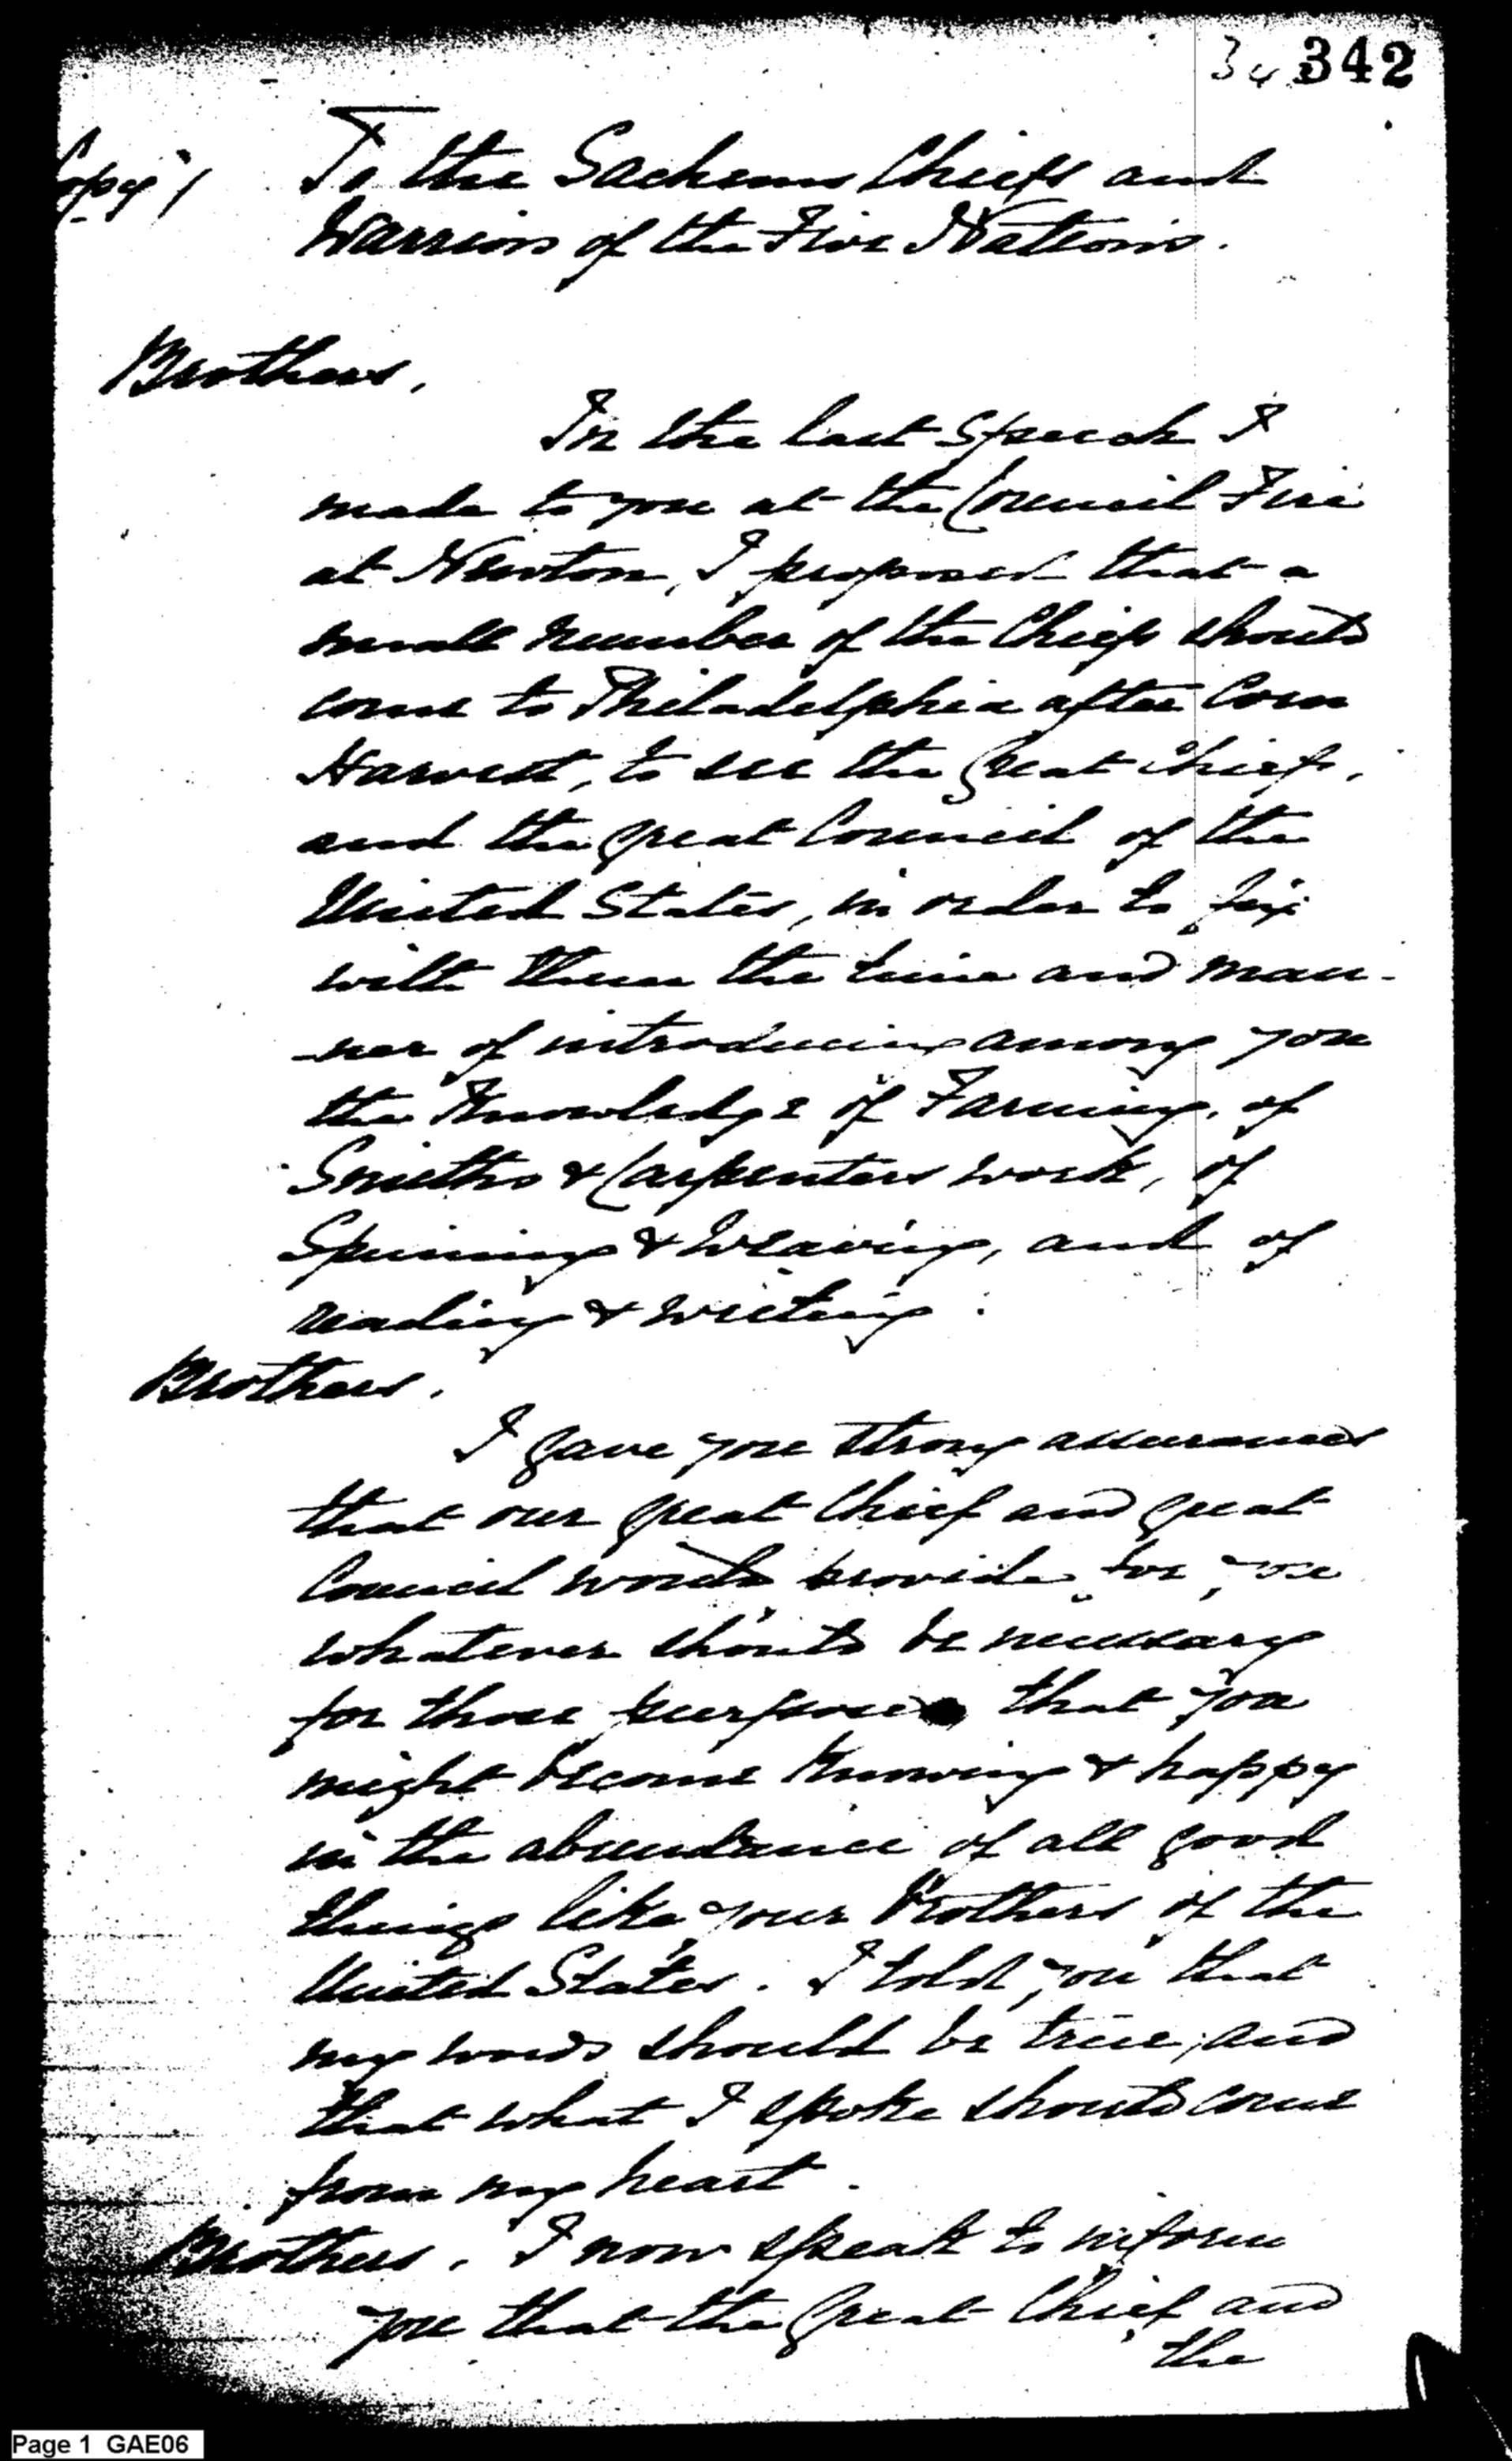 34 342
Copy/ To the Sachems Chiefs and
Warriors of the Five Nations.
Brothers,
In the last Speech I
made to you at the Council Fire
at Newton, I proposed that a
small number of the Chiefs should
come to Philadelphia after Corn
Harvest, to see the Great Chief,
and the great Council of the
United States, in order to fix
with them the time and man-
-ner of introducing among you
the Knowledge of Farming, of
Smiths & Carpenters work, of
Spinning & Weaving, and of
reading & writing.
Brothers,
I gave you strong assurances
that our great Chief and great
Council would provide for you
whatever should be necessary
for those purposes that you
might become Knowing & happy
in the abundance of all good
things like your Brothers of the
United States. I told you that
my words should be true, and
that what I spoke should come
from my heart.
Brothers. I now speak to inform
you that the Great Chief and
the
Page 1 GAE06